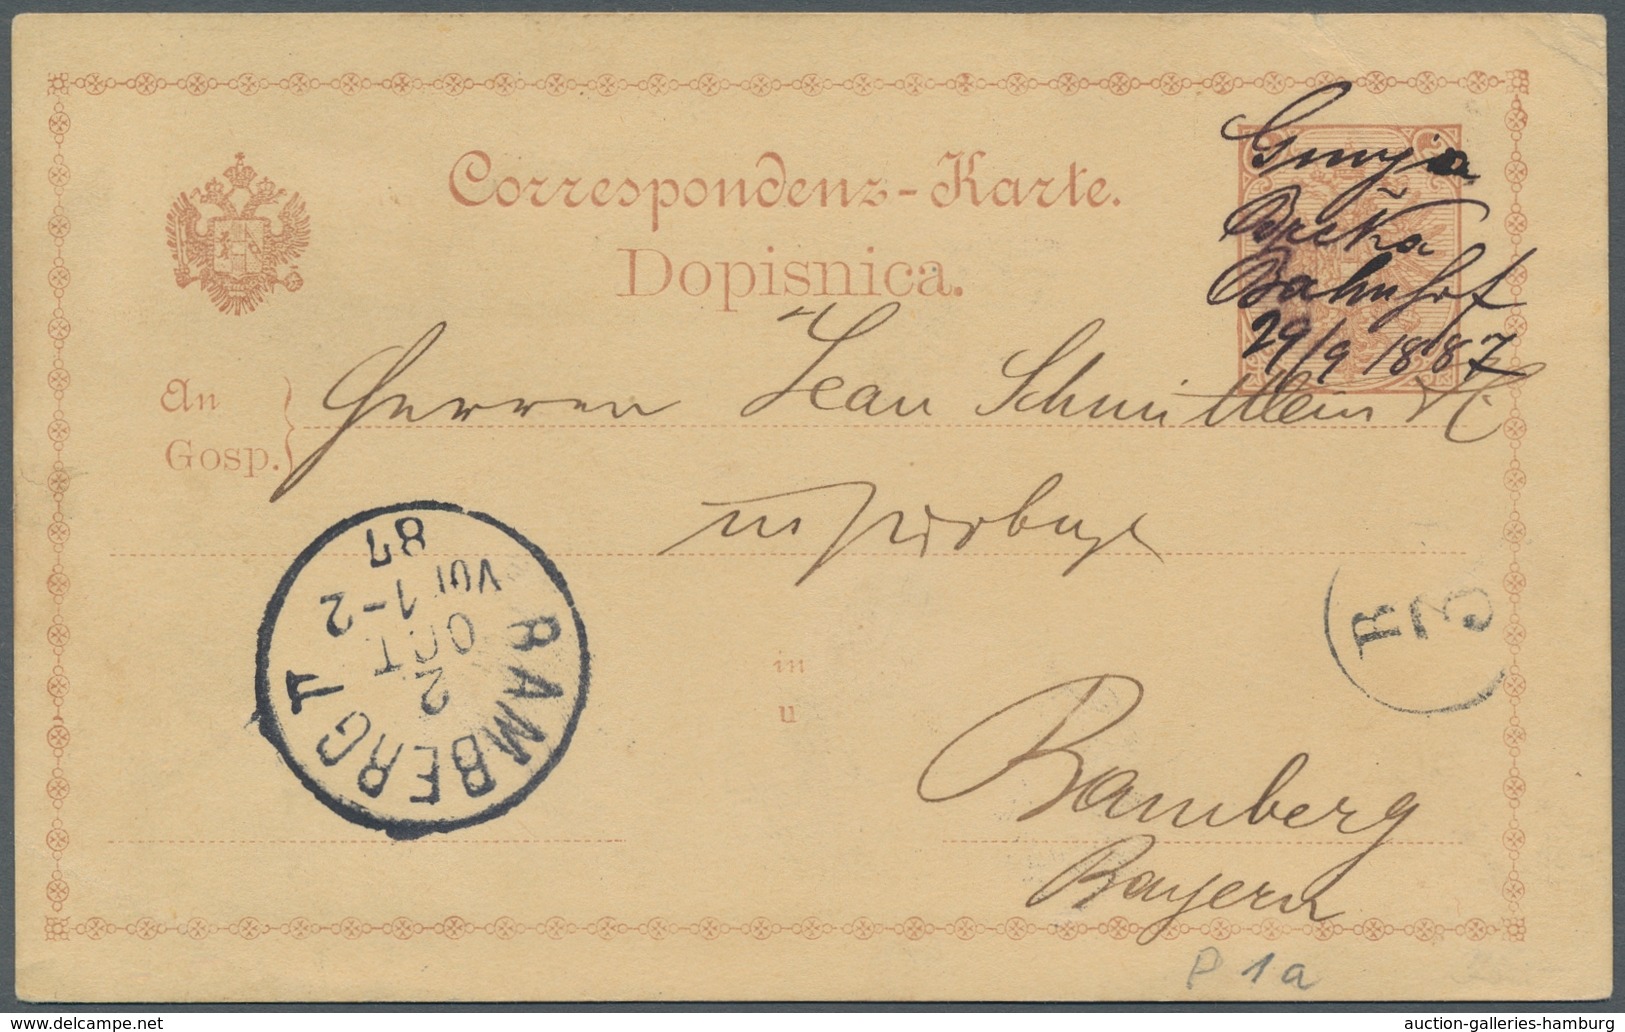 Correspondenz-Karte.
Dopisnica.
Gunja
Brčka
Bahnhof
29/9 1887
An
Gosp.
Herren Jean Schmittlein
in
u
Bamberg
Bayern
BAMBERG II
2
OCT
VOR 1-2
87
B
3
P 1a
auction-galleries-hamburg